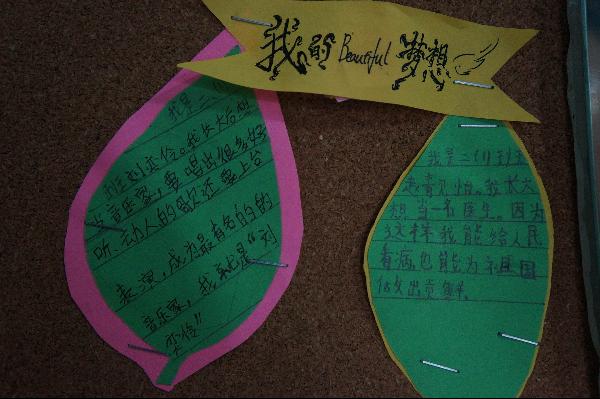 我的 Beautiful 梦想
我是二(1)
班刘奕伶。我长大后想
当音乐家，要唱出很多好
听、动人的歌还要上台
表演，成为最有名的的
音乐家，我就是“刘
奕伶"
我是二(1)班
我长大
想当一名医生。因为
这样我能给人民
看病，也能为祖国
做出贡献。